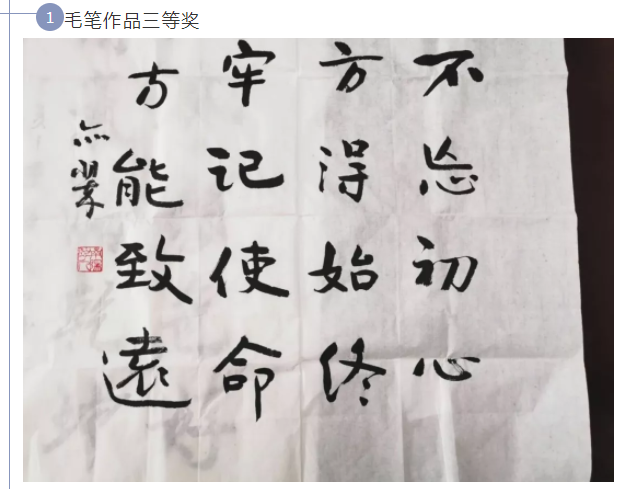 1 毛笔作品三等奖
不忘初心
方得始终
牢记使命
方能致遠